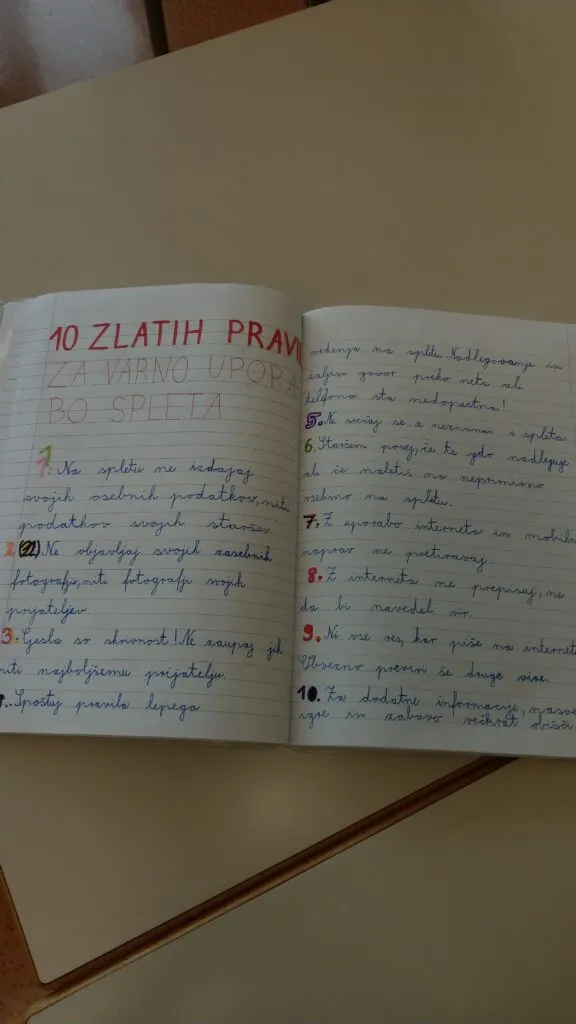 10 ZLATIH PRAVI
ZA VARNO UPORA
BO SPLETA
1. Na spletu ne izdajaj
svojih osebnih podatkov, niti
podatkov svojih staršev.
2. Ne objavljaj svojih zasebnih
fotografij, niti fotografij svojih
prijateljev.
3. Gesla so skrivnost! Ne zaupaj jih
niti najboljšemu prijatelju.
4. Spoštuj pravila lepega
vedenja na spletu. Nadlegovanje in
žaljiv govor preko neta ali
telefona sta nedopustna!
5. Ne srečaj se z neznanci s spleta
6. Staršem povej, če te gdo nadleguje
ali če naletiš na neprimerno
vsebino na spletu.
7. Z uporabo interneta in mobiln
naprav ne pretiravaj.
8. Z interneta ne prepisuj, ne
da bi navedel vir.
9. Ni vse res, kar piše na internetu
Obvezno preveri še druge vire.
10. Za dodatne informacije, nasve
igre in zabavo večkrat obišči